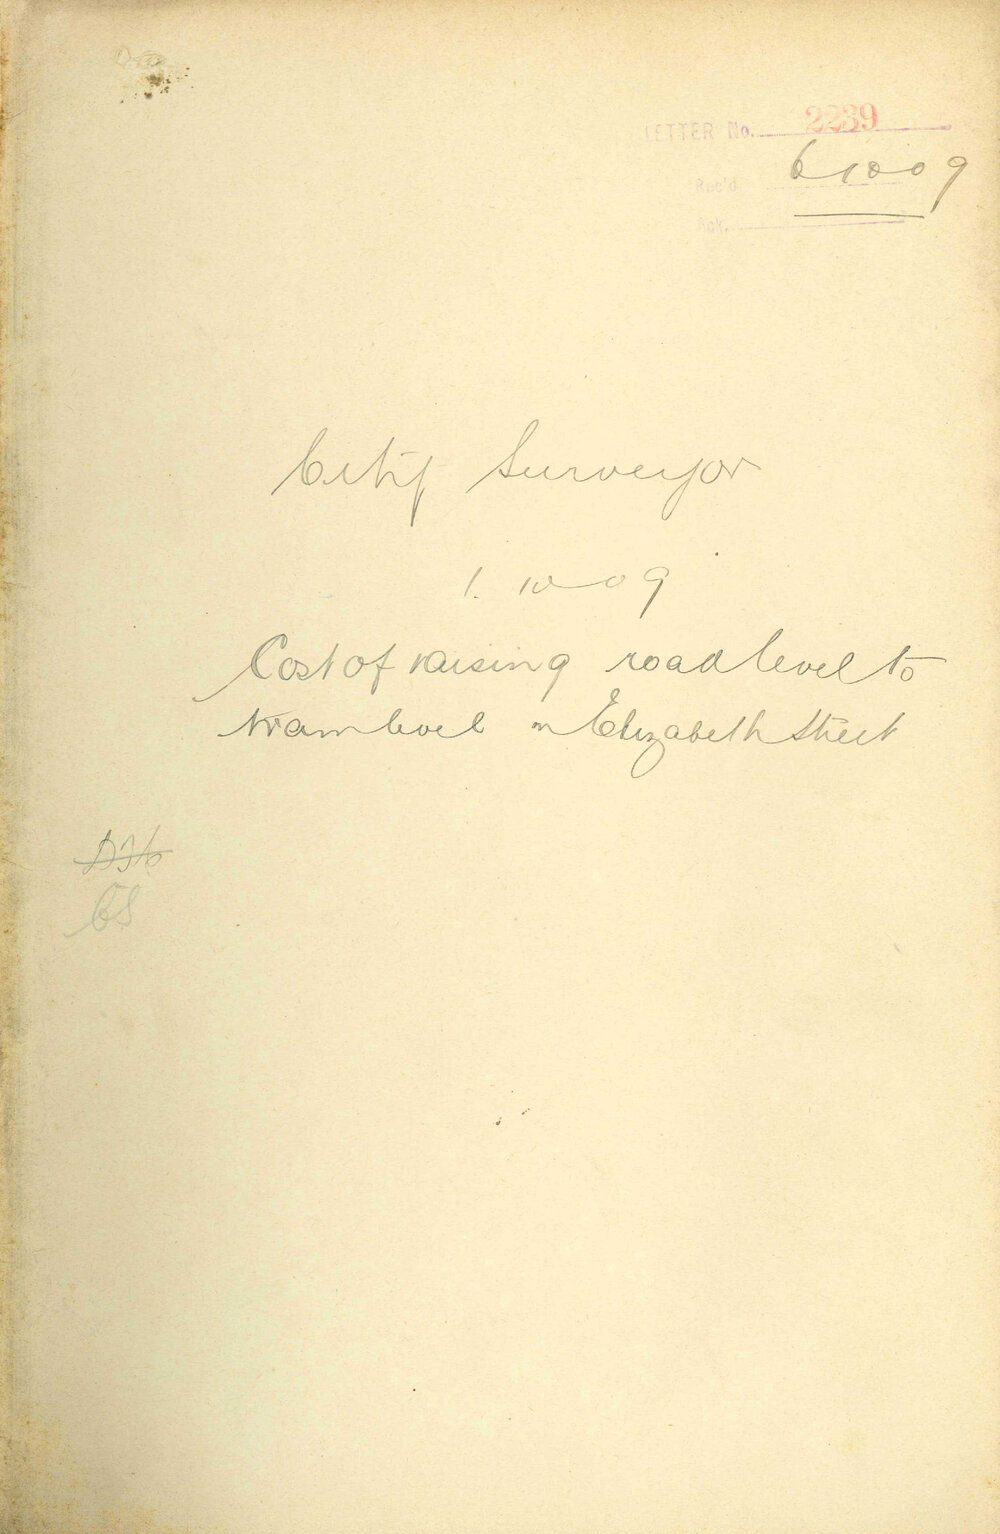 LETTER No. 2239
Rec'd. 6 10 09
Ack.
City Surveyor
1. 10 09
Cost of raising road level to
tram level in Elizabeth Street
CS